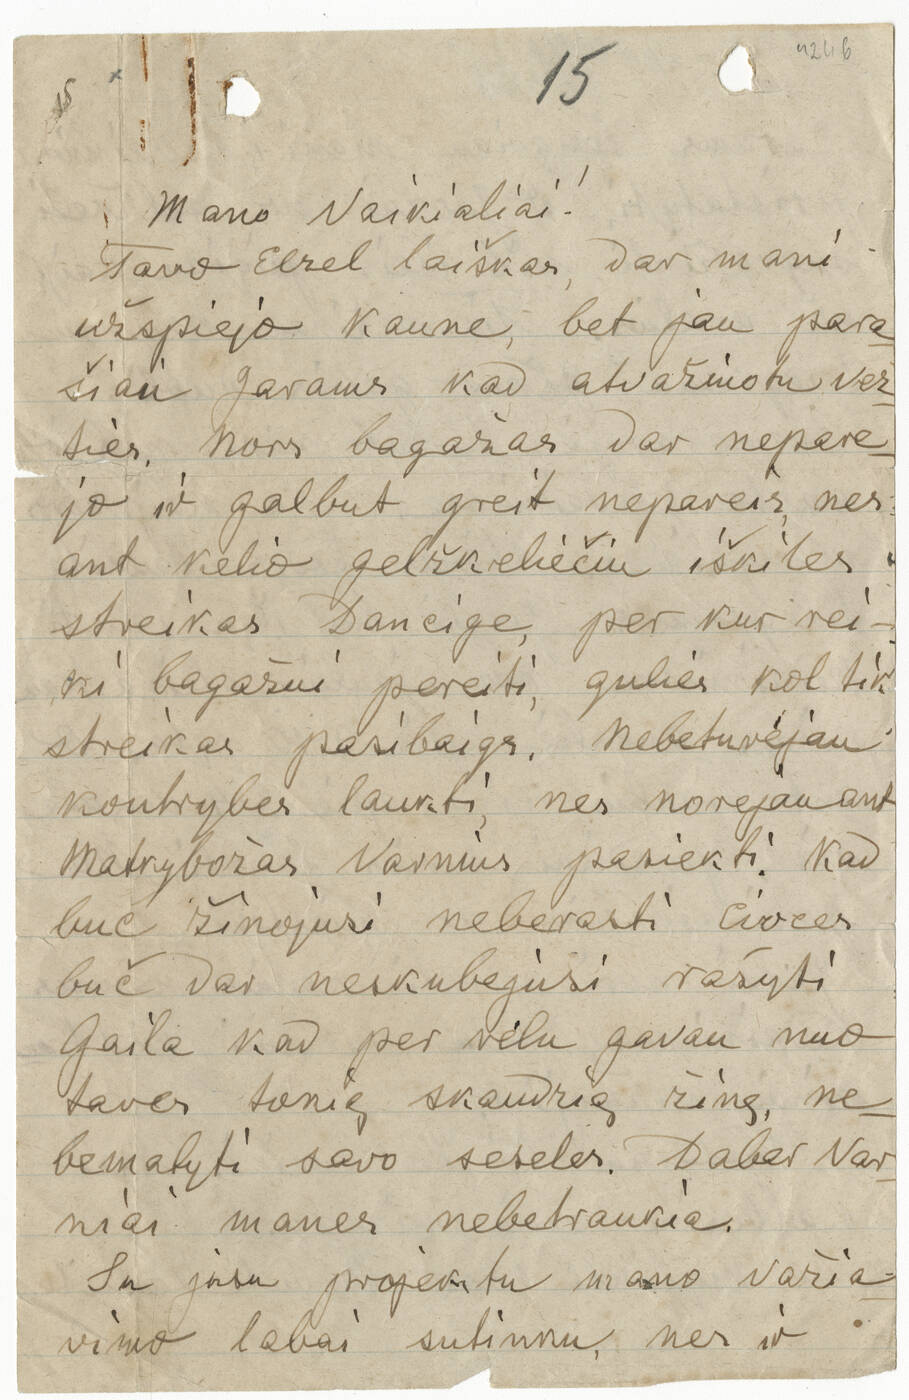 15
4246
15
Mano Vaikialiai!
Tavo Elzel laiškas, dar mani
užspiejo Kaune, bet jau para-
šiau Jarams kad atvažiuotu vež-
ties. Nors bagažas dar nepare-
jo ir galbut greit nepareis, nes
ant kelio gelžkeliečiu iškiles
streikas Dancige, per kur rei-
ki bagažui pereiti, gulies kol tik
streikas pasibaigs. Nebeturėjau
kontrybes laukti, nes norejau ant
Matkybožas Varnius pasiekti. Kad
buč žinojusi neberasti Cioces
buč dar neskubejusi rašyti
Gaila kad per vėlu gavau nuo
taves tokią skaudzią žinę, ne-
bematyti savo seseles. Dabar Var-
niai manes nebetraukia.
Su jusu projektu mano važia-
vimo labai sutinku, nes ir